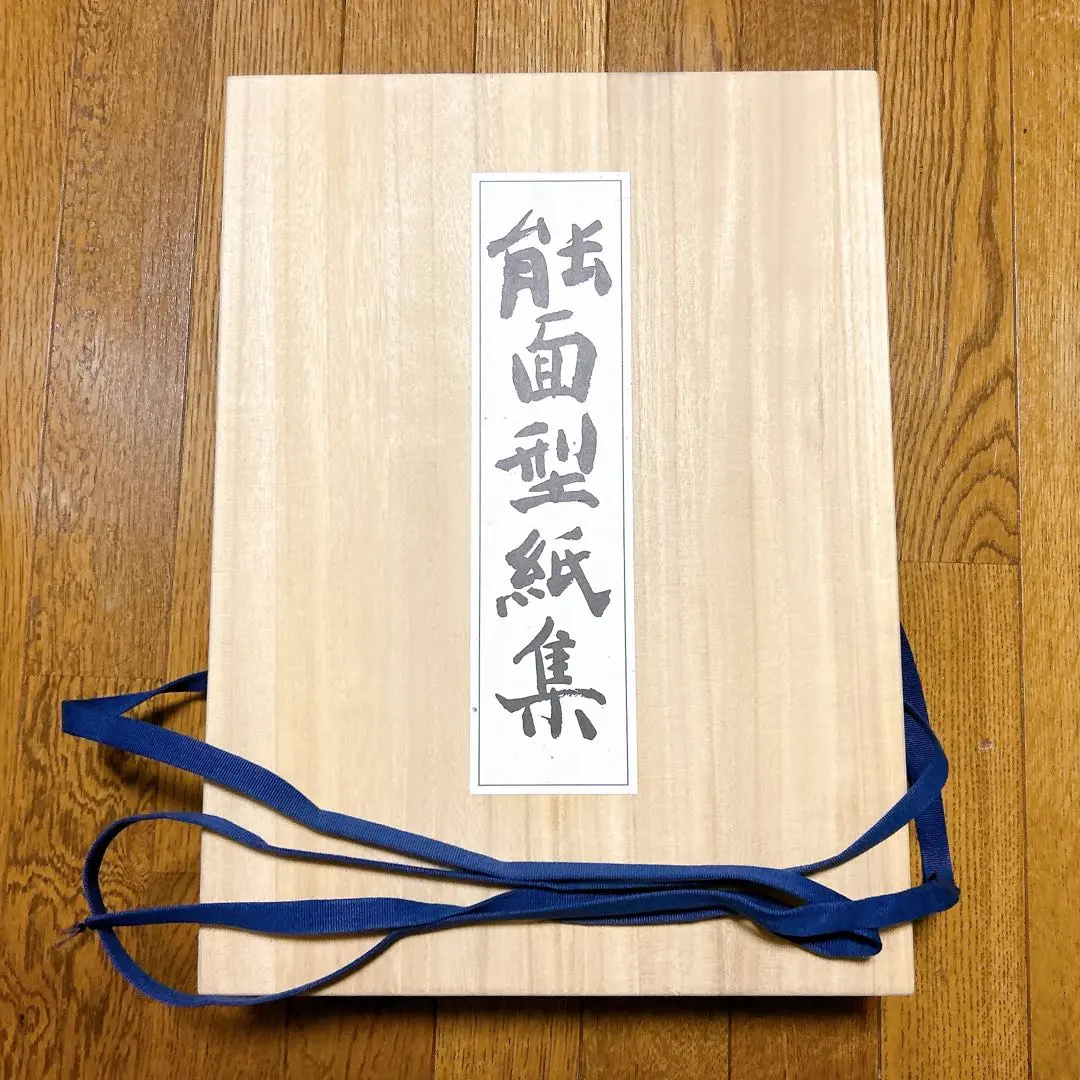 能面型紙集